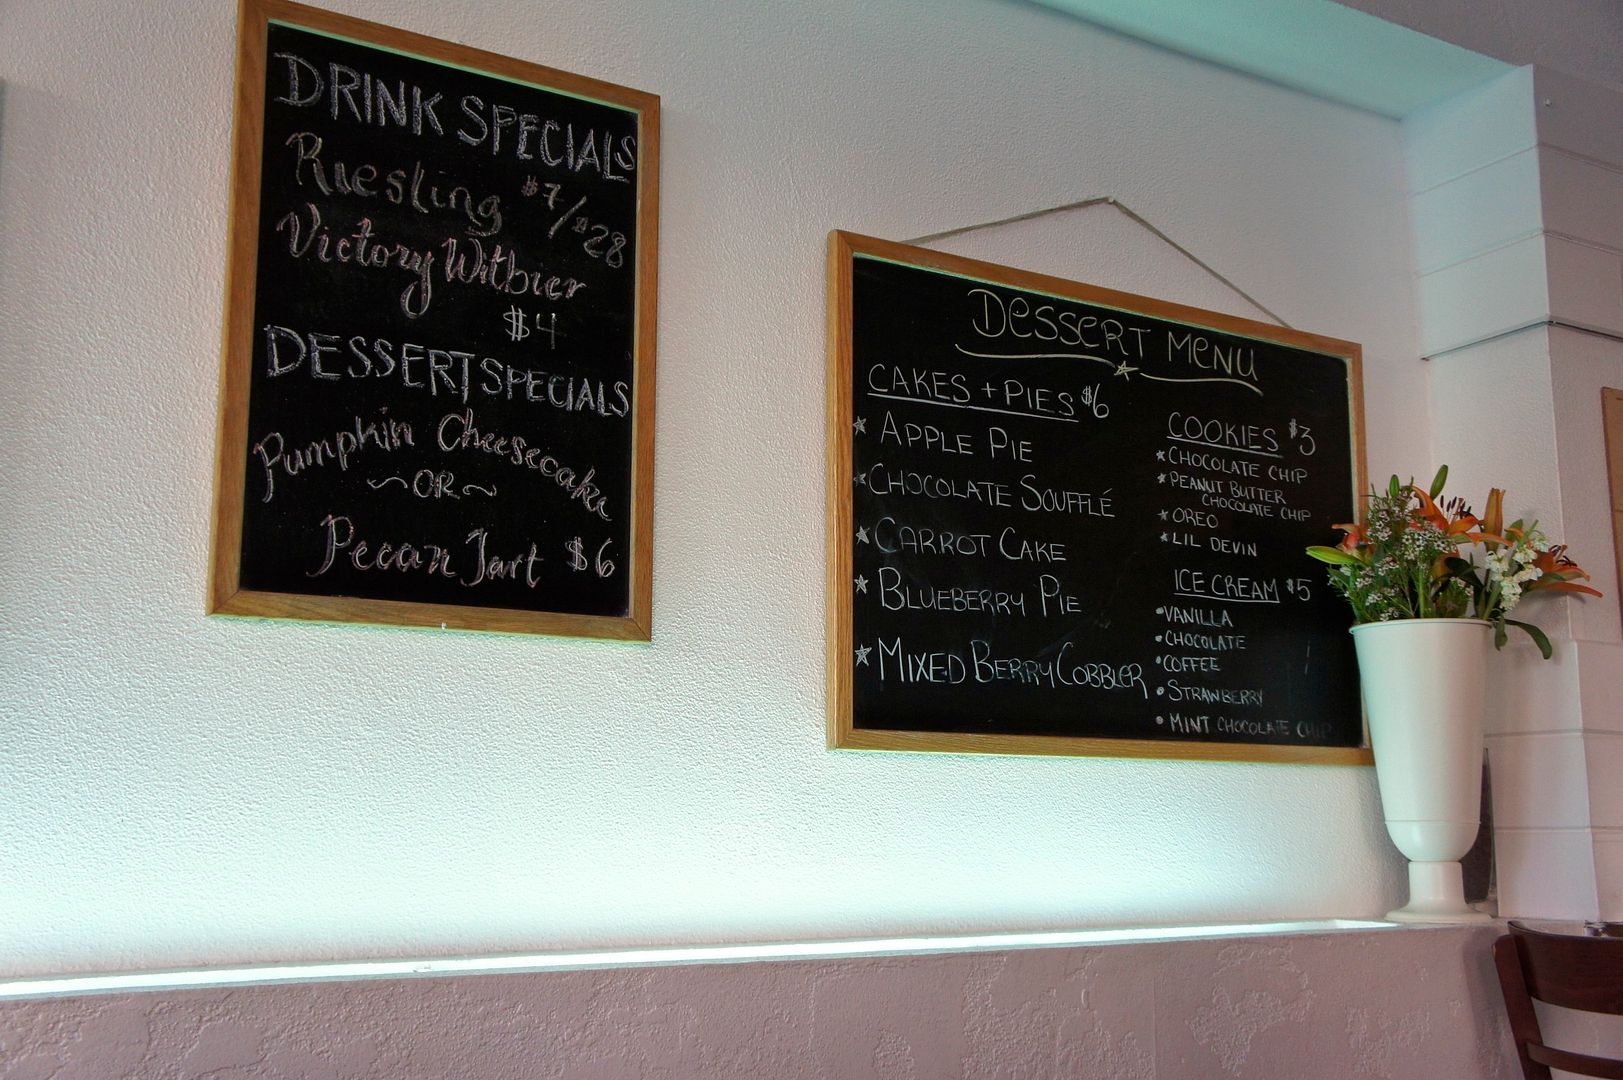 DRINK SPECIALS
Riesling $7/$28
Victory Witbier
$4
DESSERT SPECIALS
Pumpkin Cheesecake
~OR~
Pecan Tart $6
DESSERT MENU
CAKES + PIES $6
APPLE PIE
CHOCOLATE SOUFFLÉ
CARROT CAKE
BLUEBERRY PIE
MIXED BERRY COBBLER
COOKIES $3
CHOCOLATE CHIP
PEANUT BUTTER
CHOCOLATE CHIP
OREO
LIL DEVIN
ICE CREAM $5
VANILLA
CHOCOLATE
COFFEE
STRAWBERRY
MINT CHOCOLATE CHIP